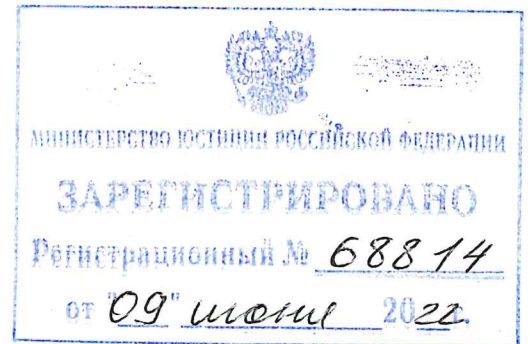 МИНИСТЕРСТВО ЮСТИЦИИ РОССИЙСКОЙ ФЕДЕРАЦИИ
ЗАРЕГИСТРИРОВАНО
Регистрационный № 68814
от "09" июня 2022 г.